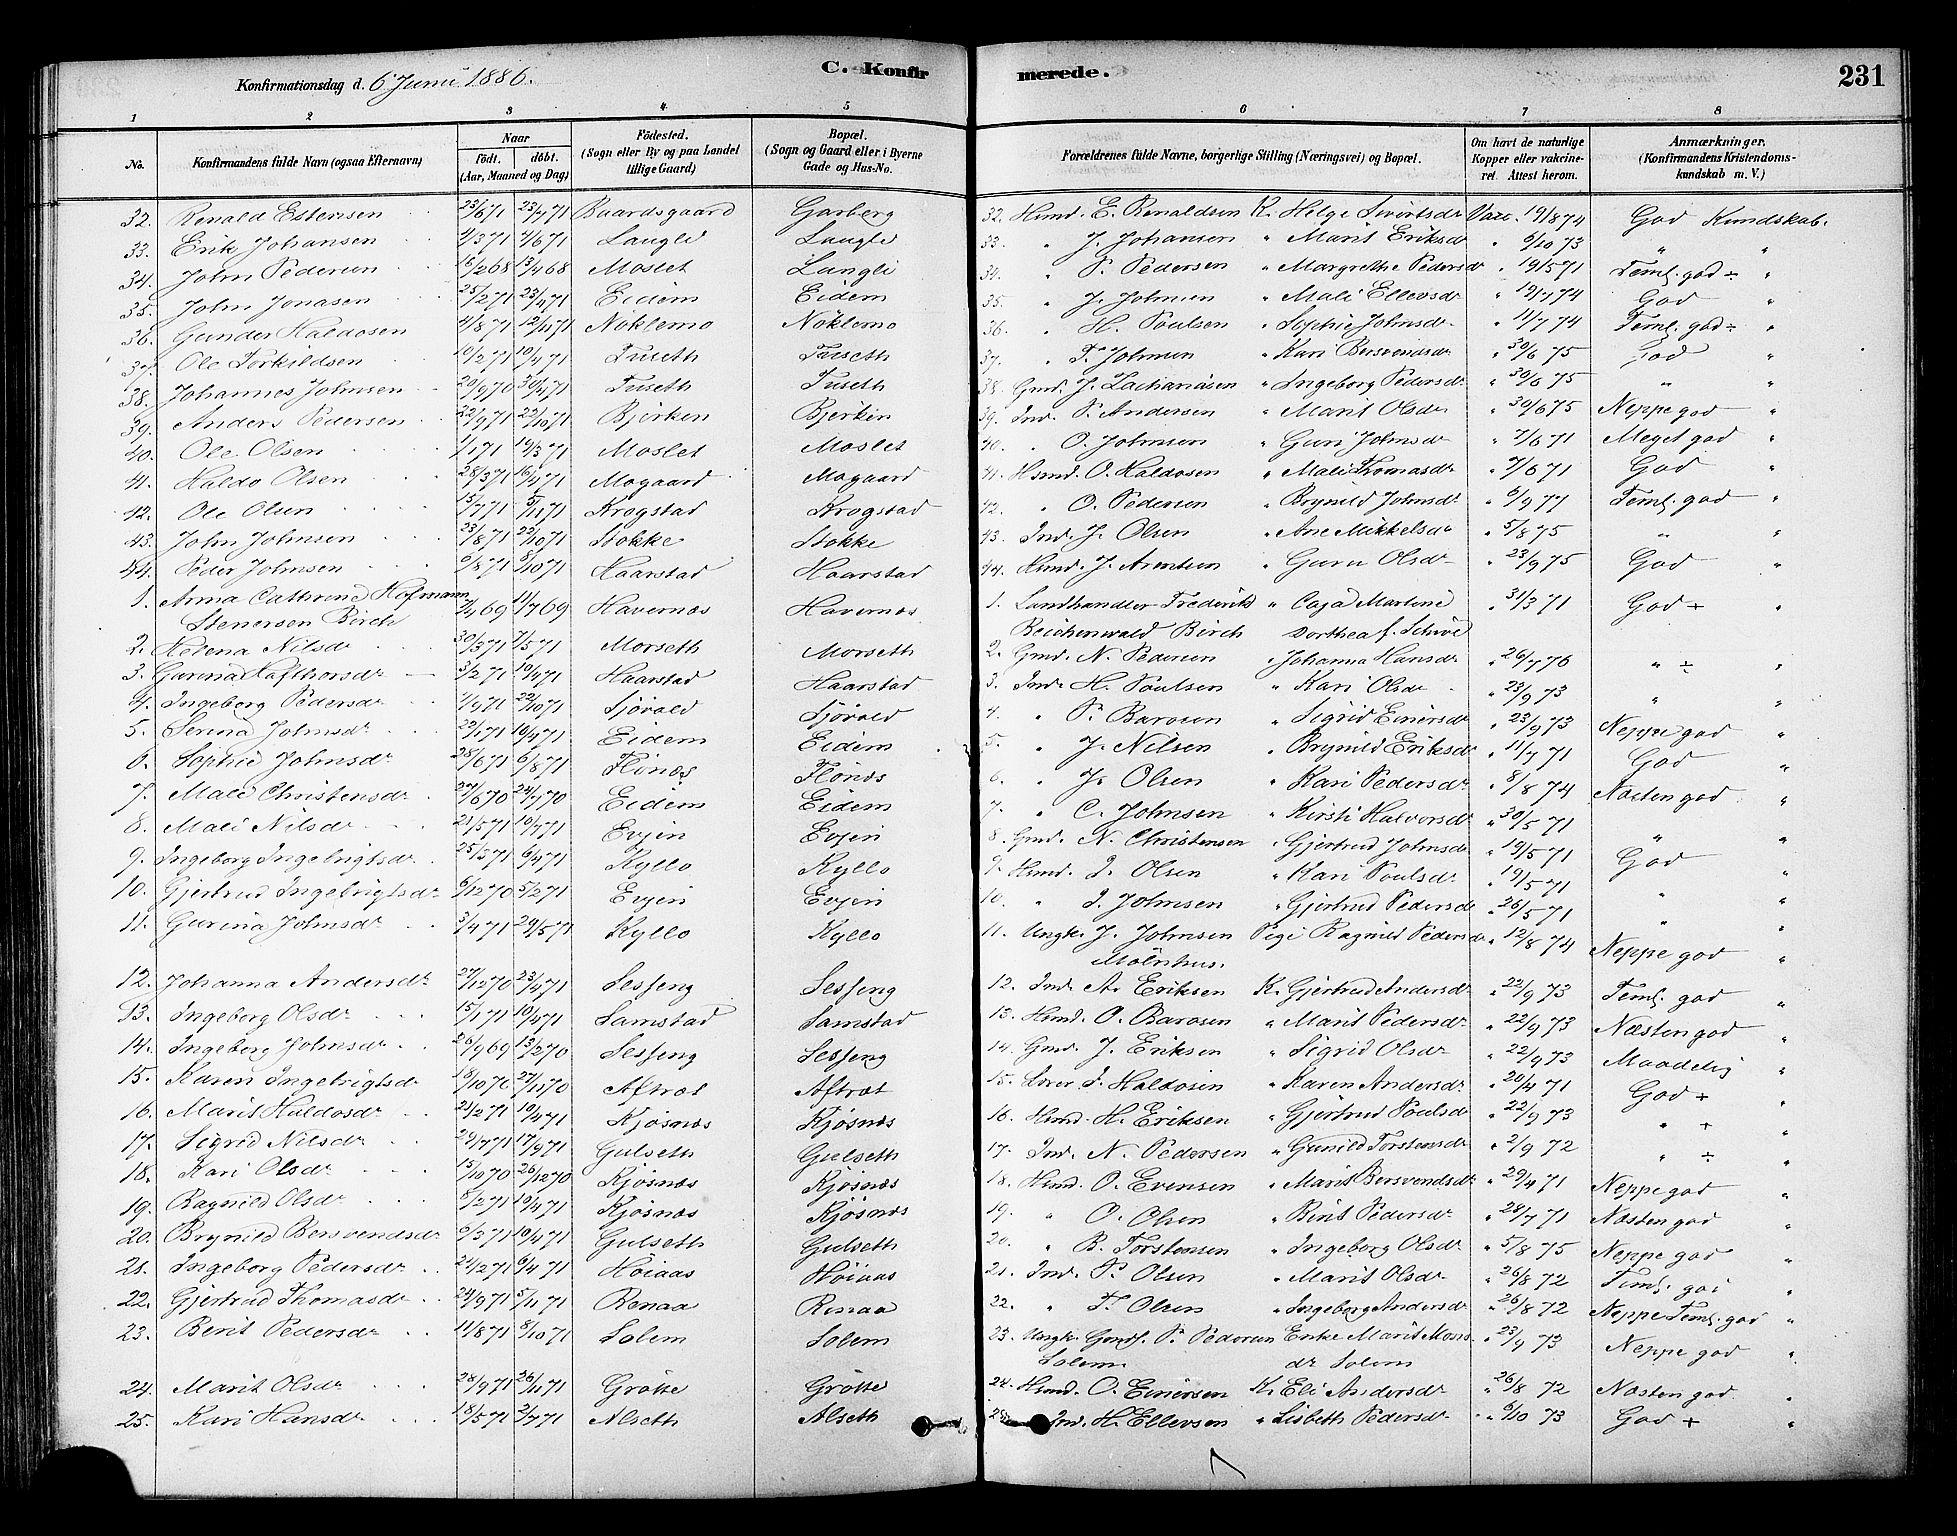 Konfirmationsdag d. 6 Juni 1886. C. Konfirmerede. 231
1 2 3 4 5 6 7 8
No. Konfirmandens fulde Navn (ogsaa Efternavn) Naar født. døbt. (Aar, Maaned og Dag) Fødested. (Sogn eller By og paa Landet tillige Gaard) Bopæl. (Sogn og Gaard eller i Byerne Gade og Hus-No. Forældrenes fulde Navne, borgerlige Stilling (Næringsvei) og Bopæl. Om havt de naturlige Kopper eller vakcineret. Attest herom. Anmærkninger. (Konfirmandens Kristendomskundskab m. V.)
32. Renald Estensen 23/6 71 23/7 71 Baardsgaard Garberg 32. Husmd. E. Renaldsen K. Helge Sivertsdr Vacc. 19/8 74 God Kundskab.
33. Erik Johansen 2/3 71 4/6 71 Langli Langli 33. " J. Johansen " Marit Eriksdr " 6/10 73 " "
34. John Pedersen 16/2 68 13/4 68 Moslet Langli 34. " P. Pedersen " Margrethe Pedersdr " 19/5 71 Teml. god ÷ "
35. John Jonasen 25/2 71 23/4 71 Eidem Eidem 35. " J. Johnsen " Mali Ellevsdr " 12/7 74 God "
36. Gunder Haldosen 4/8 71 12/11 71 Nöklemo Nöklemo 36. " H. Poulsen " Sophie Johnsdr " 11/7 74 Teml. god ÷ "
37. Ole Torkildsen 10/2 71 10/4 71 Tuseth Tuseth 37. " T. Johnsen " Kari Bersvendsdr " 30/6 75 God "
38. Johannes Johnsen 20/9 70 30/4 71 Tuseth Tuseth 38. Gmd. J. Zachariasen " Ingeborg Pedersdr " 30/6 75 " "
39. Anders Pedersen 22/9 71 22/10 71 Bjerken Bjerken 39. Ind. P. Andersen " Marit Olsdr " 30/6 75 Neppe god "
40. Ole Olsen 1/1 71 19/3 71 Moslet Moslet 40. " O. Johnsen " Guri Johnsdr " 7/6 71 Meget god "
41. Haldo Olsen 28/3 71 16/4 71 Mogaard Mogaard 41. Husmd. O. Haldosen " Mali Thomasdr " 7/6 71 God "
42. Ole Olsen 15/7 71 5/11 71 Krogstad Krogstad 42. " O. Pedersen " Brynild Johnsdr " 6/9 77 Teml. god "
43. John Johnsen 23/8 71 22/10 71 Stokke Stokke 43. Ind. J. Olsen " Ane Mikkelsdr " 5/8 75 " "
44. Peder Johnsen 6/8 71 8/10 71 Haarstad Haarstad 44. Husmd. J. Arentsen " Guru Olsdr " 23/9 75 God "
1. Anna Cathrine Hofmann Stenersen Birch 7/4 69 11/7 69 Havernæs Havernæs 1. Landhandler Frederik Reichenwald Birch " Caja Martine Dorthea f. Schive " 31/3 71 God + "
2. Helena Nilsdr 30/3 71 7/5 71 Morseth Morseth 2. Gmd. N. Pedersen " Johanna Hansdr " 26/7 76 " ÷ "
3. Gurina Hafthorsdr 3/2 71 10/4 71 Haarstad Haarstad 3. Ind. H. Poulsen " Kari Olsdr " 23/9 73 " "
4. Ingeborg Pedersdr 1/9 71 22/10 71 Sjövold Sjövold 4. " P. Barosen " Sigrid Einersdr " 23/9 73 Neppe god "
5. Serina Johnsdr 22/1 71 10/4 71 Eidem Eidem 5. " J. Nilsen " Brynild Eriksdr " 11/7 71 God "
6. Sophie Johnsdr 28/6 71 6/8 71 Flönæs Flönæs 6. " J. Olsen " Kari Pedersdr " 8/8 74 Næsten god "
7. Mali Christensdr 27/6 70 24/7 70 Eidem Eidem 7. " C. Johnsen " Kirsti Halvorsdr " 30/5 71 " "
8. Mali Nilsdr 21/5 71 10/7 71 Evjen Evjen 8. Gmd. N. Christensen " Gjertrud Johnsdr " 19/5 71 God "
9. Ingeborg Ingebrigtsdr 25/3 71 6/4 71 Kyllo Kyllo 9. Husmd. I. Olsen " Kari Poulsdr " 19/5 71 " "
10. Gjertrud Ingebrigtsdr 6/12 70 5/2 71 Evjen Evjen 10. " I. Johnsen " Gjertrud Pedersdr " 26/5 71 " "
11. Gurina Johnsdr 3/4 71 29/5 71 Kyllo Kyllo 11. Ungk. J. Johnsen Mölnhus. Pige Ragnild Pedersdr " 12/8 74 Neppe god "
12. Johanna Andersdr 27/12 70 23/4 71 Sesseng Sesseng 12. Ind. A. Eriksen K. Gjertrud Andersdr " 22/9 73 Teml. god "
13. Ingeborg Olsdr 15/1 71 10/4 71 Samstad Samstad 13. Husmd. O. Barosen " Marit Pedersdr " 22/9 73 Næsten god "
14. Ingeborg Johnsdr 26/9 69 13/2 70 Sesseng Sesseng 14. Gmd. J. Eriksen " Sigrid Olsdr " 22/9 73 Maadelig "
15. Karen Ingebrigtsdr 18/10 70 27/11 70 Aftræt Aftræt 15. I. Haldosen " Karen Andersdr " 20/4 71 God + "
16. Marit Haldosdr 21/2 71 10/4 71 Kjösnæs Kjösnæs 16. Husmd. H. Eriksen " Gjertrud Poulsdr " 22/9 73 " + "
17. Sigrid Nilsdr 29/7 71 17/9 71 Gulseth Gulseth 17. Ind. N. Pedersen " Gunild Torstensdr " 2/9 72 " ÷ "
18. Kari Olsdr 15/10 70 26/12 70 Kjösnæs Kjösnæs 18. Husmd. O. Evensen " Marit Bersvendsdr " 29/4 71 Neppe god "
19. Ragnild Olsdr 8/2 71 10/4 71 Kjösnæs Kjösnæs 19. " O. Olsen " Berit Pedersdr " 28/7 71 Næsten god "
20. Brynild Bersvendsdr 6/3 71 10/4 71 Gulseth Gulseth 20. " B. Torstensen " Ingeborg Olsdr " 5/8 75 Neppe god "
21. Ingeborg Pedersdr 24/2 71 6/4 71 Höiaas Höiaas 21. Ind. P. Olsen " Marit Olsdr " 26/8 72 Teml. god "
22. Gjertrud Thomasdr 24/9 71 5/11 71 Renaa Renaa 22. " T. Olsen " Ingeborg Andersdr " 26/8 72 Neppe Teml. god "
23. Berit Pedersdr 11/8 71 8/10 71 Solem Solem 23. Ungk. Gmdf. P. Pedersen Solem. Enke Marit Monsdr Solem " 23/9 73 Neppe god "
24. Marit Olsdr 28/9 71 26/11 71 Grötte Grötte 24. Husmd. O. Einersen K. Eli Andersdr " 26/8 72 Næsten god "
25. Kari Hansdr 18/5 71 2/7 71 Alseth Alseth 25. Ind. H. Ellevsen " Lisbeth Pedersdr " 6/10 73 God + "